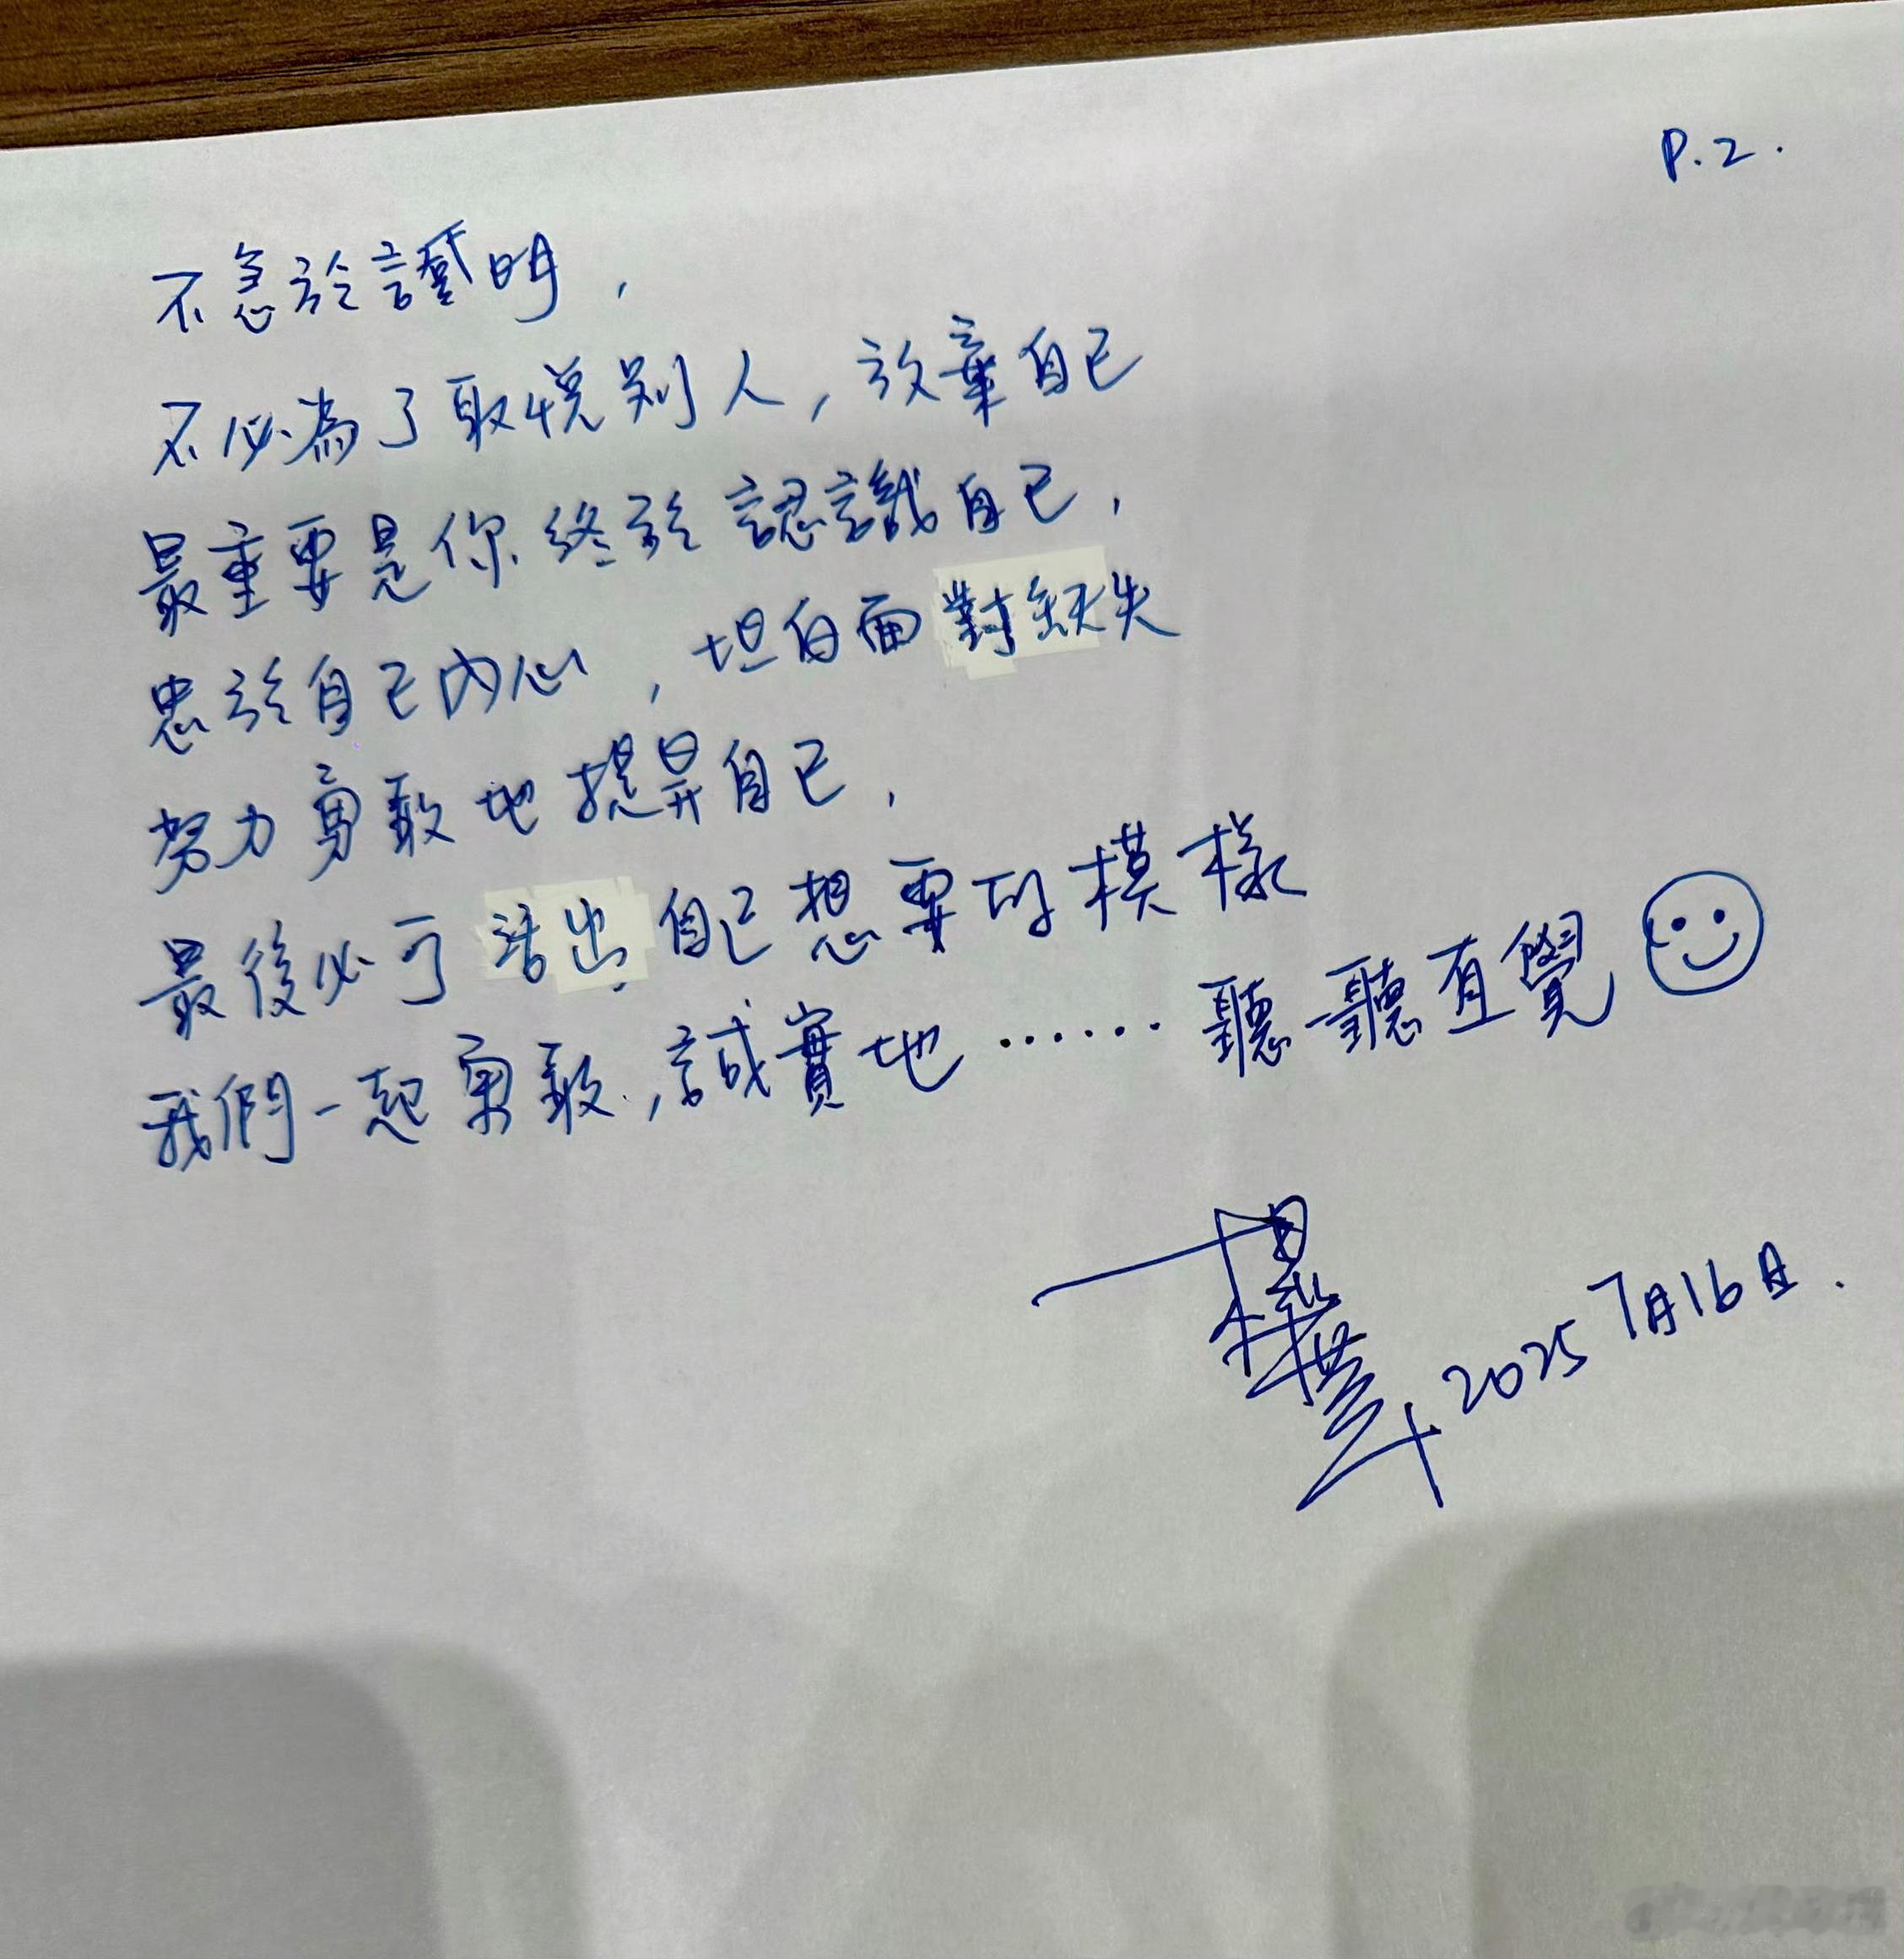 P.2.
不急於證明，
不必為了取悅別人，放棄自己
最重要是你終於認識自己，
忠於自己內心，坦白面對缺失
努力勇敢地提昇自己，
最後必可活出自己想要的模樣
我們一起勇敢，誠實地……聽一聽直覺
2025 7月16日.